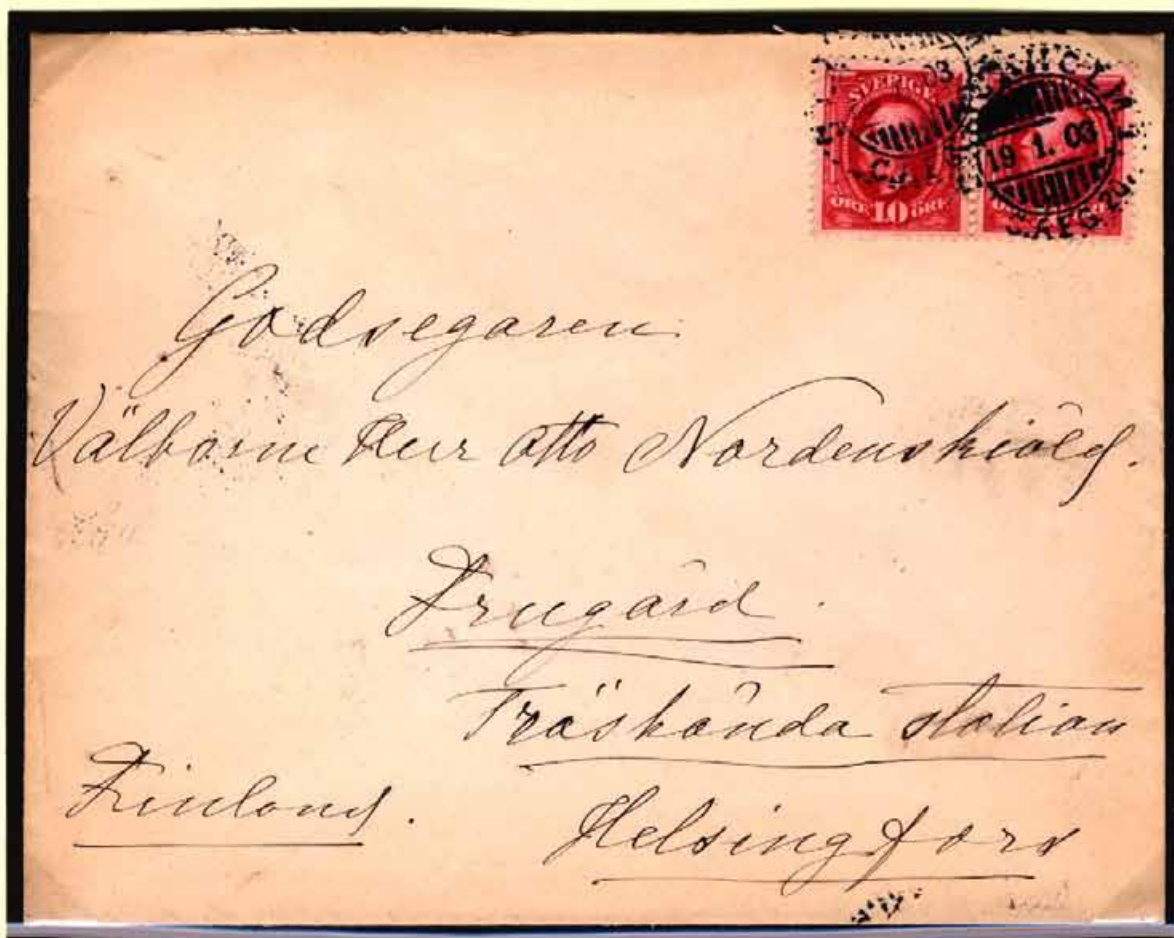 SVERIGE
ÖRE 10 ÖRE
19 1. 03
Godsegaren
Välborne Herr Otto Nordenskiöld.
Frugård.
Träskända station
Finland.
Helsingfors